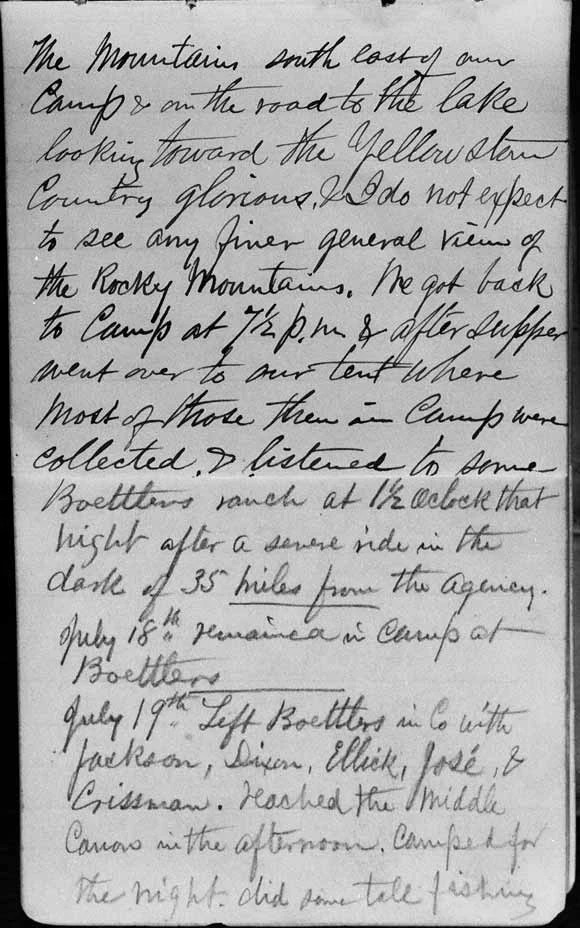 The Mountains south east of our
Camp & on the road to the lake
looking toward the Yellowstone
Country glorious, & I do not expect
to see any finer general view of
the Rocky Mountains. We got back
to Camp at 7½ p.m. & after supper
went over to our tent where
most of those then in Camp were
collected, & listened to some
Boettlers ranch at 1½ Oclock that
night after a severe ride in the
dark of 35 miles from the agency.
July 18th remained in camp at
Boettlers
July 19th Left Boettlers in Co with
Jackson, Dixon, Ellick, José, &
Crissman. reached the Middle
Canon in the afternoon. Camped for
the night. did some tall fishing